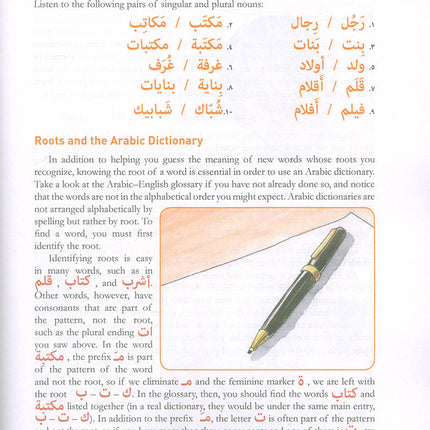 Listen to the following pairs of singular and plural nouns:
١. رَجُل / رِجال ٢. مَكتَب / مَكاتِب
٣. بِنت / بَنات ٤. مَكتَبة / مكتبات
٥. ولد / أولاد ٦. غرفة / غُرَف
٧. قَلَم / أقلام ٨. بِناية / بنايات
٩. فيلم / أفلام ١٠. شُبّاك / شَبابيك
Roots and the Arabic Dictionary
In addition to helping you guess the meaning of new words whose roots you
recognize, knowing the root of a word is essential in order to use an Arabic dictionary.
Take a look at the Arabic–English glossary if you have not already done so, and notice
that the words are not in the alphabetical order you might expect. Arabic dictionaries are
not arranged alphabetically by
spelling but rather by root. To
find a word, you must first
identify the root.
Identifying roots is easy
in many words, such as in
قلم , كتاب , and أشرب.
Other words, however, have
consonants that are part of
the pattern, not the root,
such as the plural ending ات
you saw above. In the word
مكتبة, the prefix مَـ is part
of the pattern of the word
and not the root, so if we eliminate مَـ and the feminine marker ة , we are left with
the root ك – ت – ب. In the glossary, then, you should find the words كتاب and
مكتبة listed together (in a real dictionary, they would be under the same main entry,
ك – ت – ب). In addition to the prefix مَـ, the letter ت is often part of the pattern